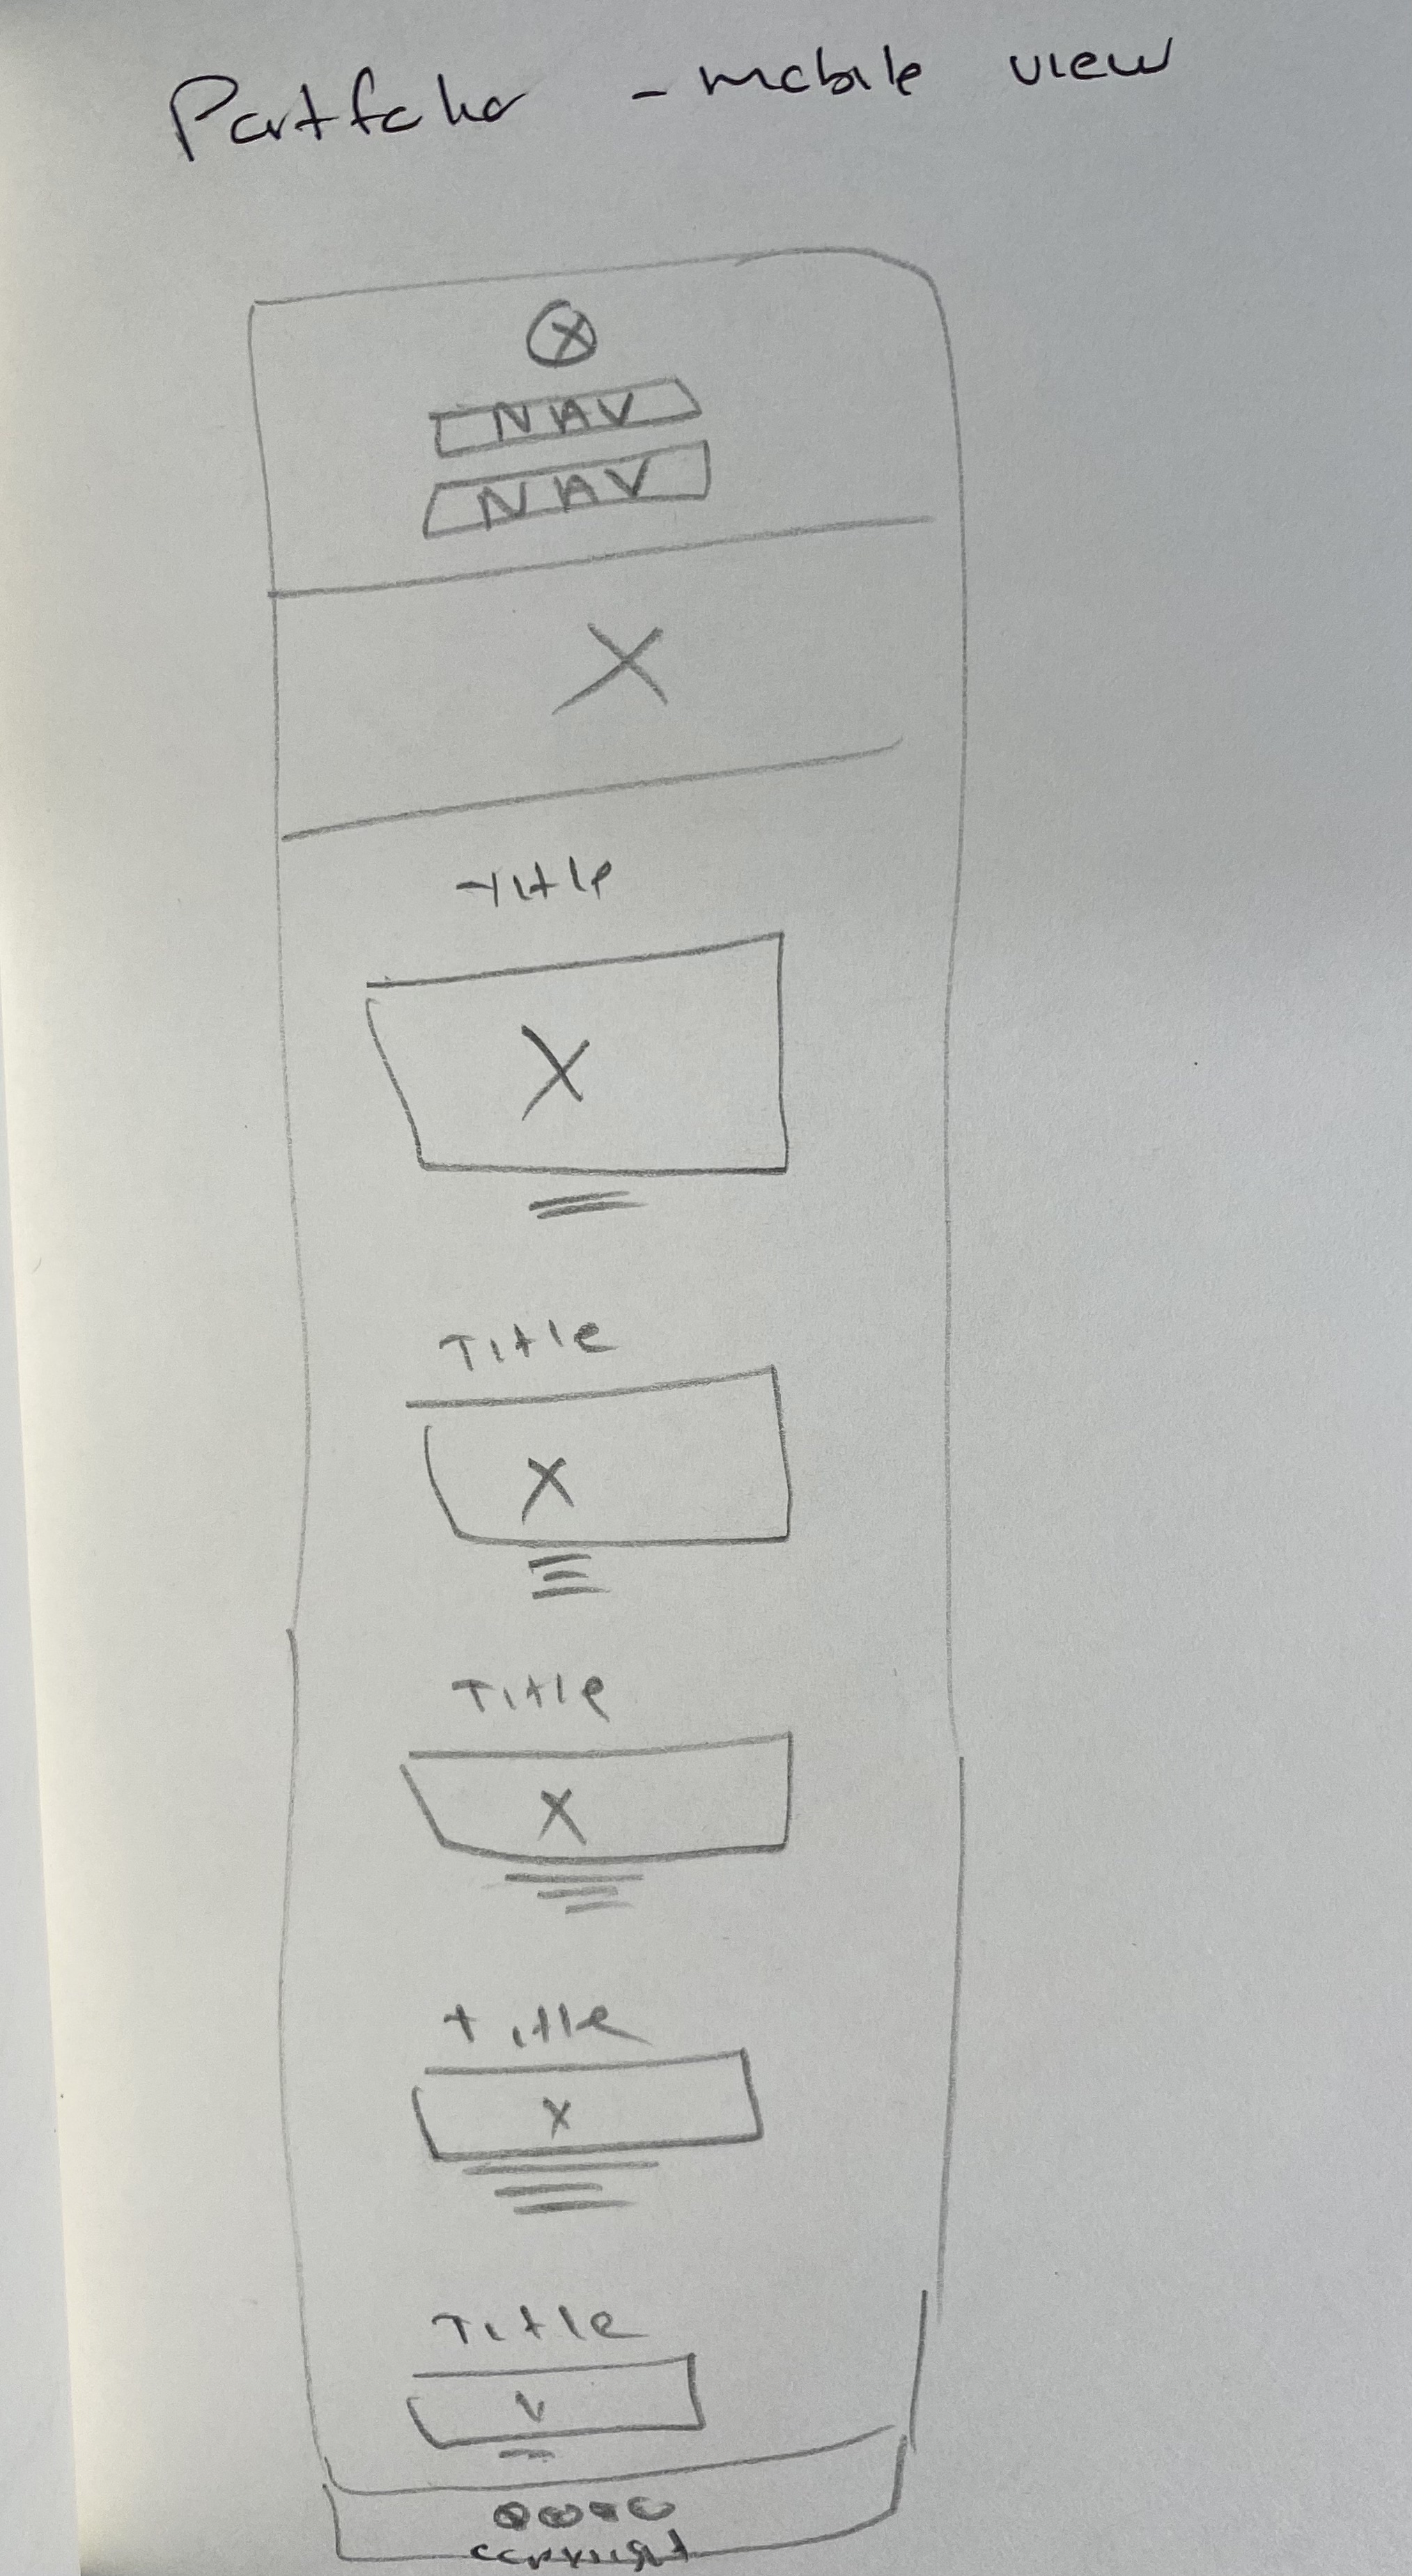 Portfolio - mobile view
X
NAV
NAV
X
Title
X
Title
X
Title
X
Title
X
Title
copyright